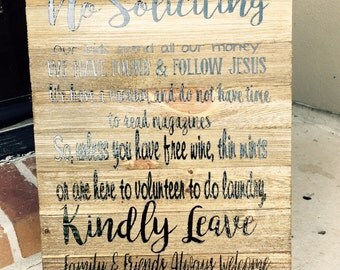 No Soliciting
our kids spend all our money
& FOLLOW JESUS
and do not have time
to read magazines
So, unless you have free wine, thin mints
or are here to volunteer to do laundry,
Kindly Leave
Family & Friends Always welcome